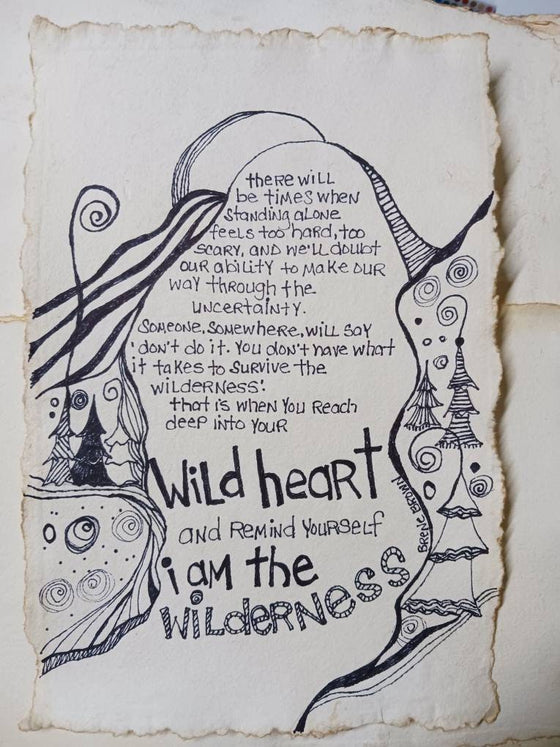 there will
be times when
standing alone
feels too hard, too
scary, and we'll doubt
our ability to make our
way through the
uncertainty.
Someone, somewhere, will say
'don't do it. You don't have what
it takes to survive the
wilderness'.
that is when you reach
deep into your
Wild heart
and remind yourself
i am the
wilderness
Brene Brown